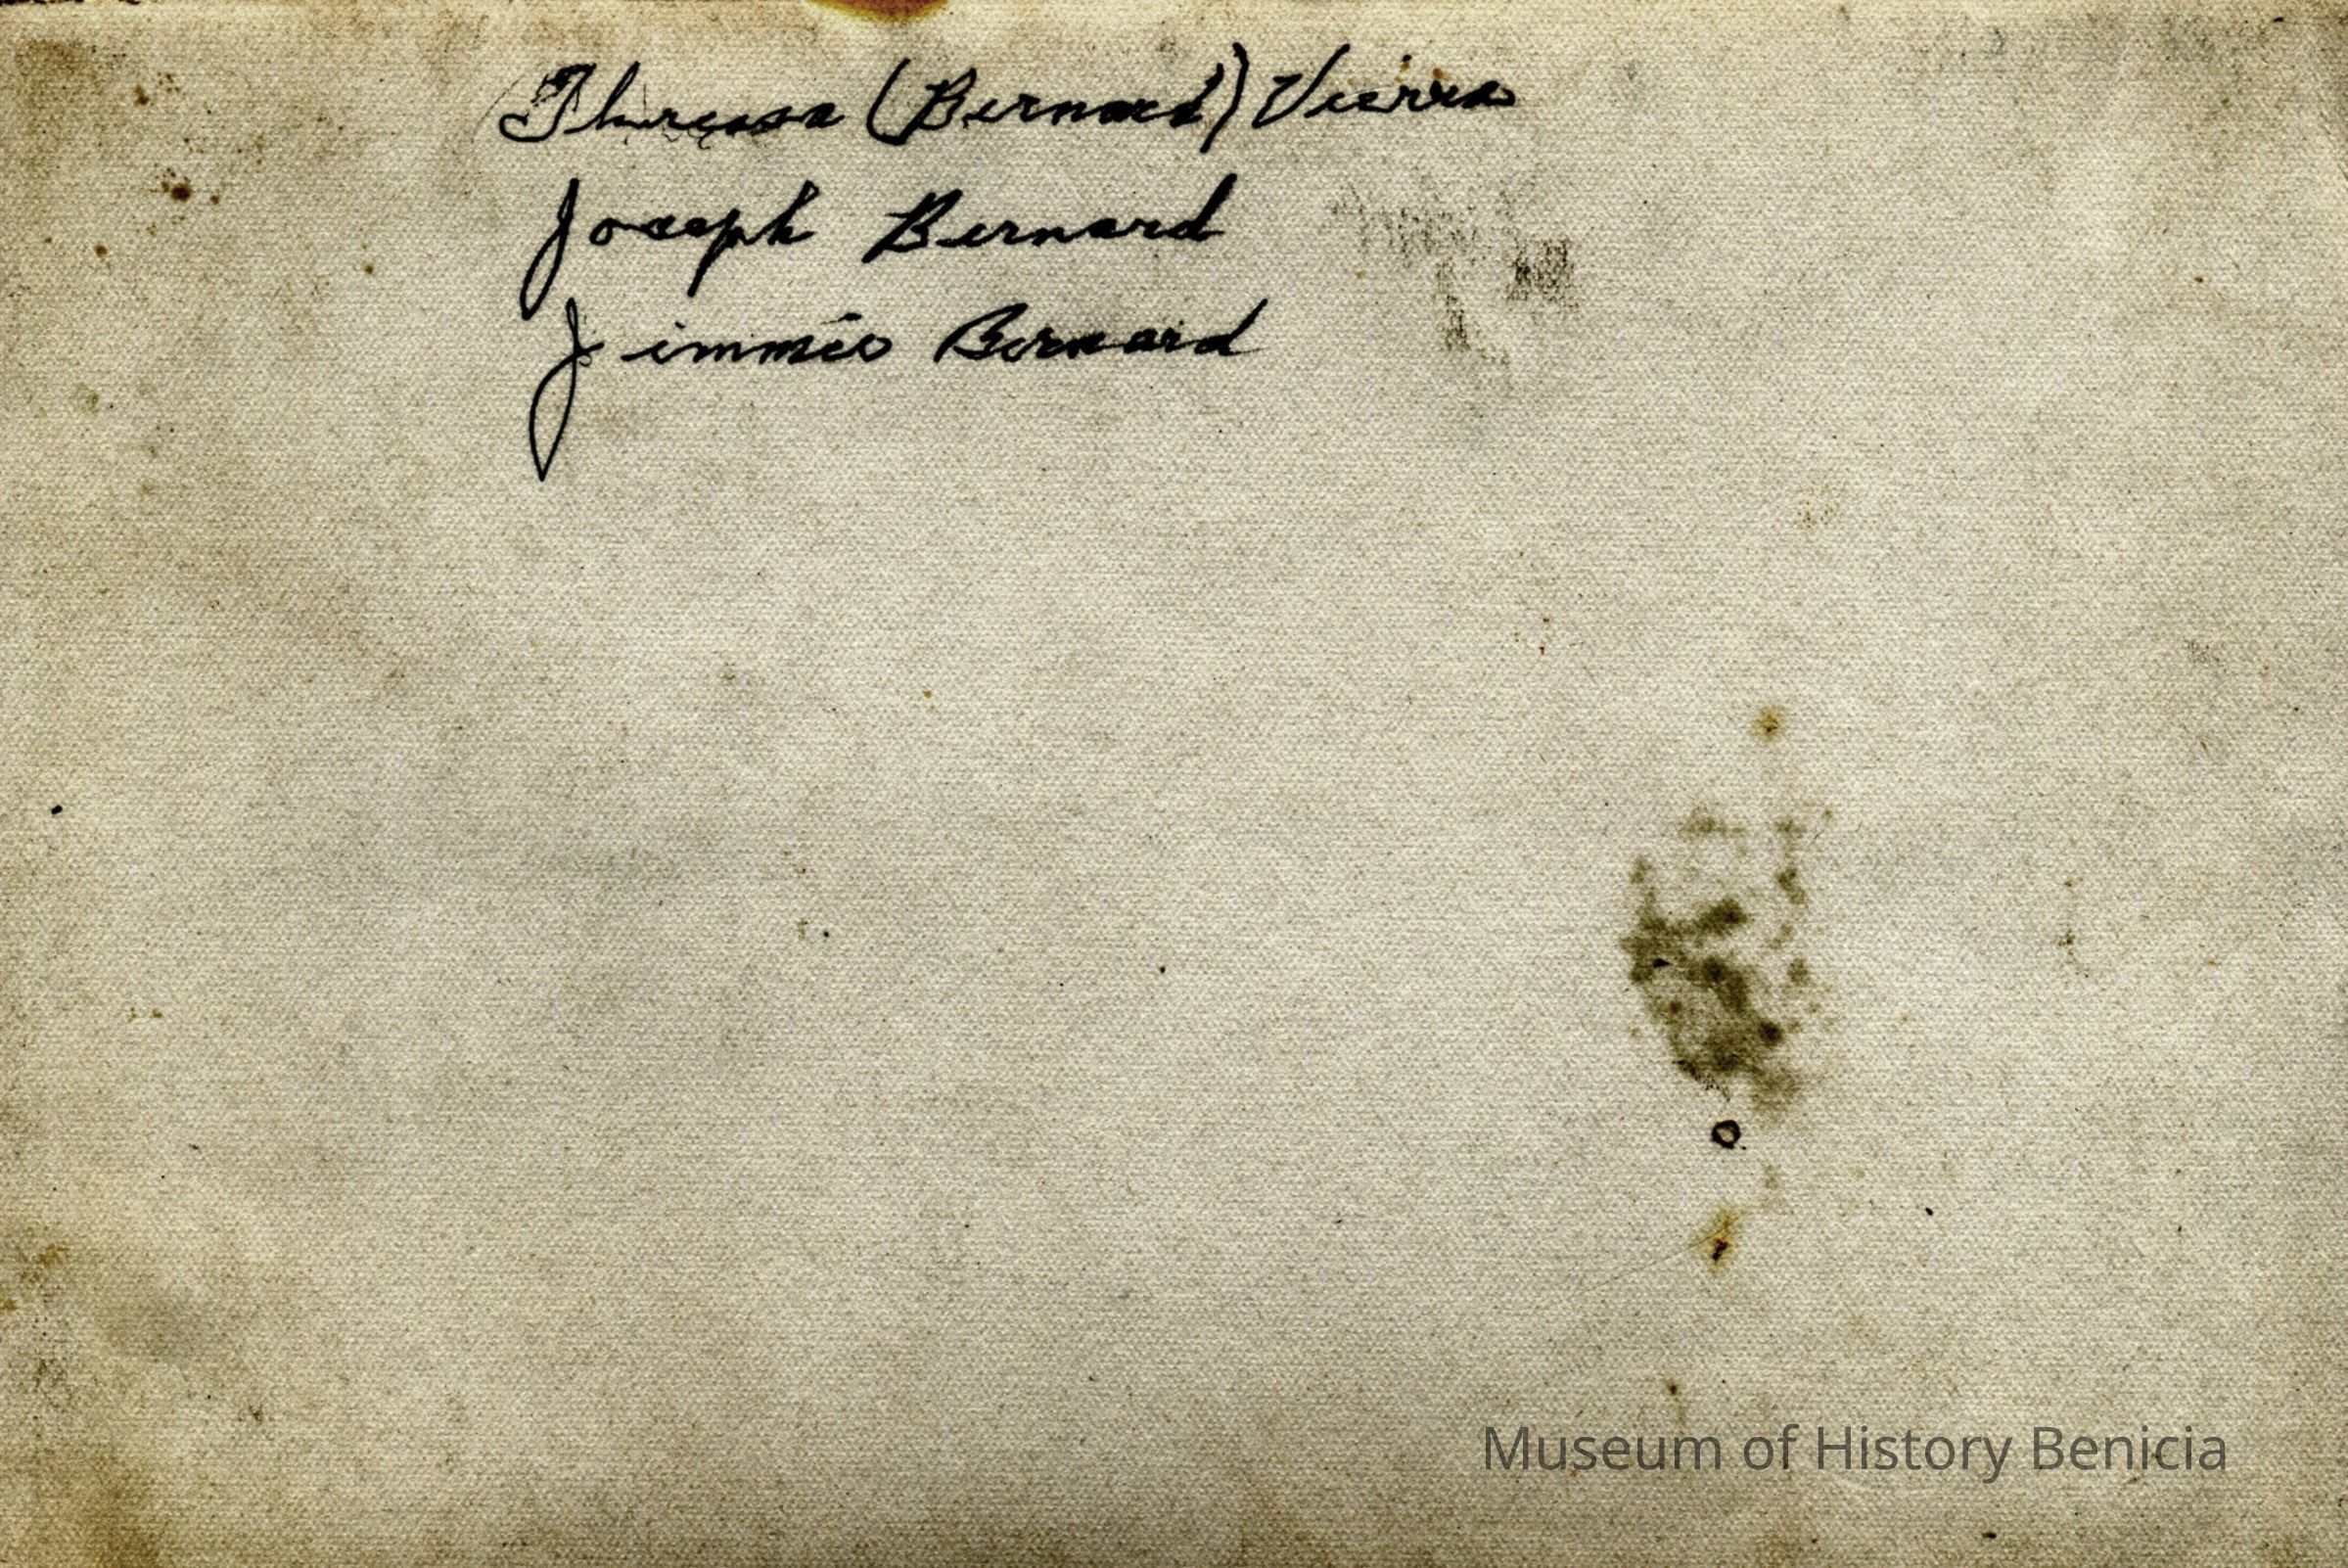 Theresa (Bernard) Vierra
Joseph Bernard
Jimmie Bernard
Museum of History Benicia